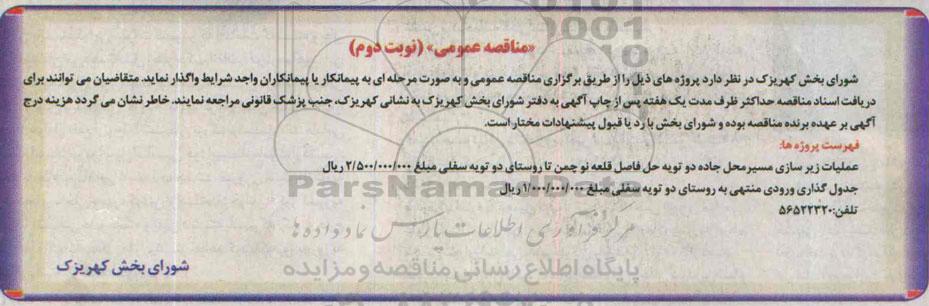 «مناقصه عمومی» (نوبت دوم)
شورای بخش کهریزک در نظر دارد پروژه های ذیل را از طریق برگزاری مناقصه عمومی و به صورت مرحله ای به پیمانکار یا پیمانکاران واجد شرایط واگذار نماید. متقاضیان می توانند برای
دریافت اسناد مناقصه حداکثر ظرف مدت یک هفته پس از چاپ آگهی به دفتر شورای بخش کهریزک به نشانی کهریزک، جنب پزشک قانونی مراجعه نمایند. خاطر نشان می گردد هزینه درج
آگهی بر عهده برنده مناقصه بوده و شورای بخش با رد یا قبول پیشنهادات مختار است.
فهرست پروژه ها:
عملیات زیر سازی مسیر محل جاده دو تویه حل فاصل قلعه نو چمن تا روستای دو تویه سفلی مبلغ ۲/۵۰۰/۰۰۰/۰۰۰ ریال
جدول گذاری ورودی منتهی به روستای دو تویه سفلی مبلغ ۱/۰۰۰/۰۰۰/۰۰۰ ریال
تلفن: ۵۶۵۲۲۳۲۰
شورای بخش کهریزک
ParsNamadData
مرکز فرآوری اطلاعات پارس نماد داده ها
پایگاه اطلاع رسانی مناقصه و مزایده